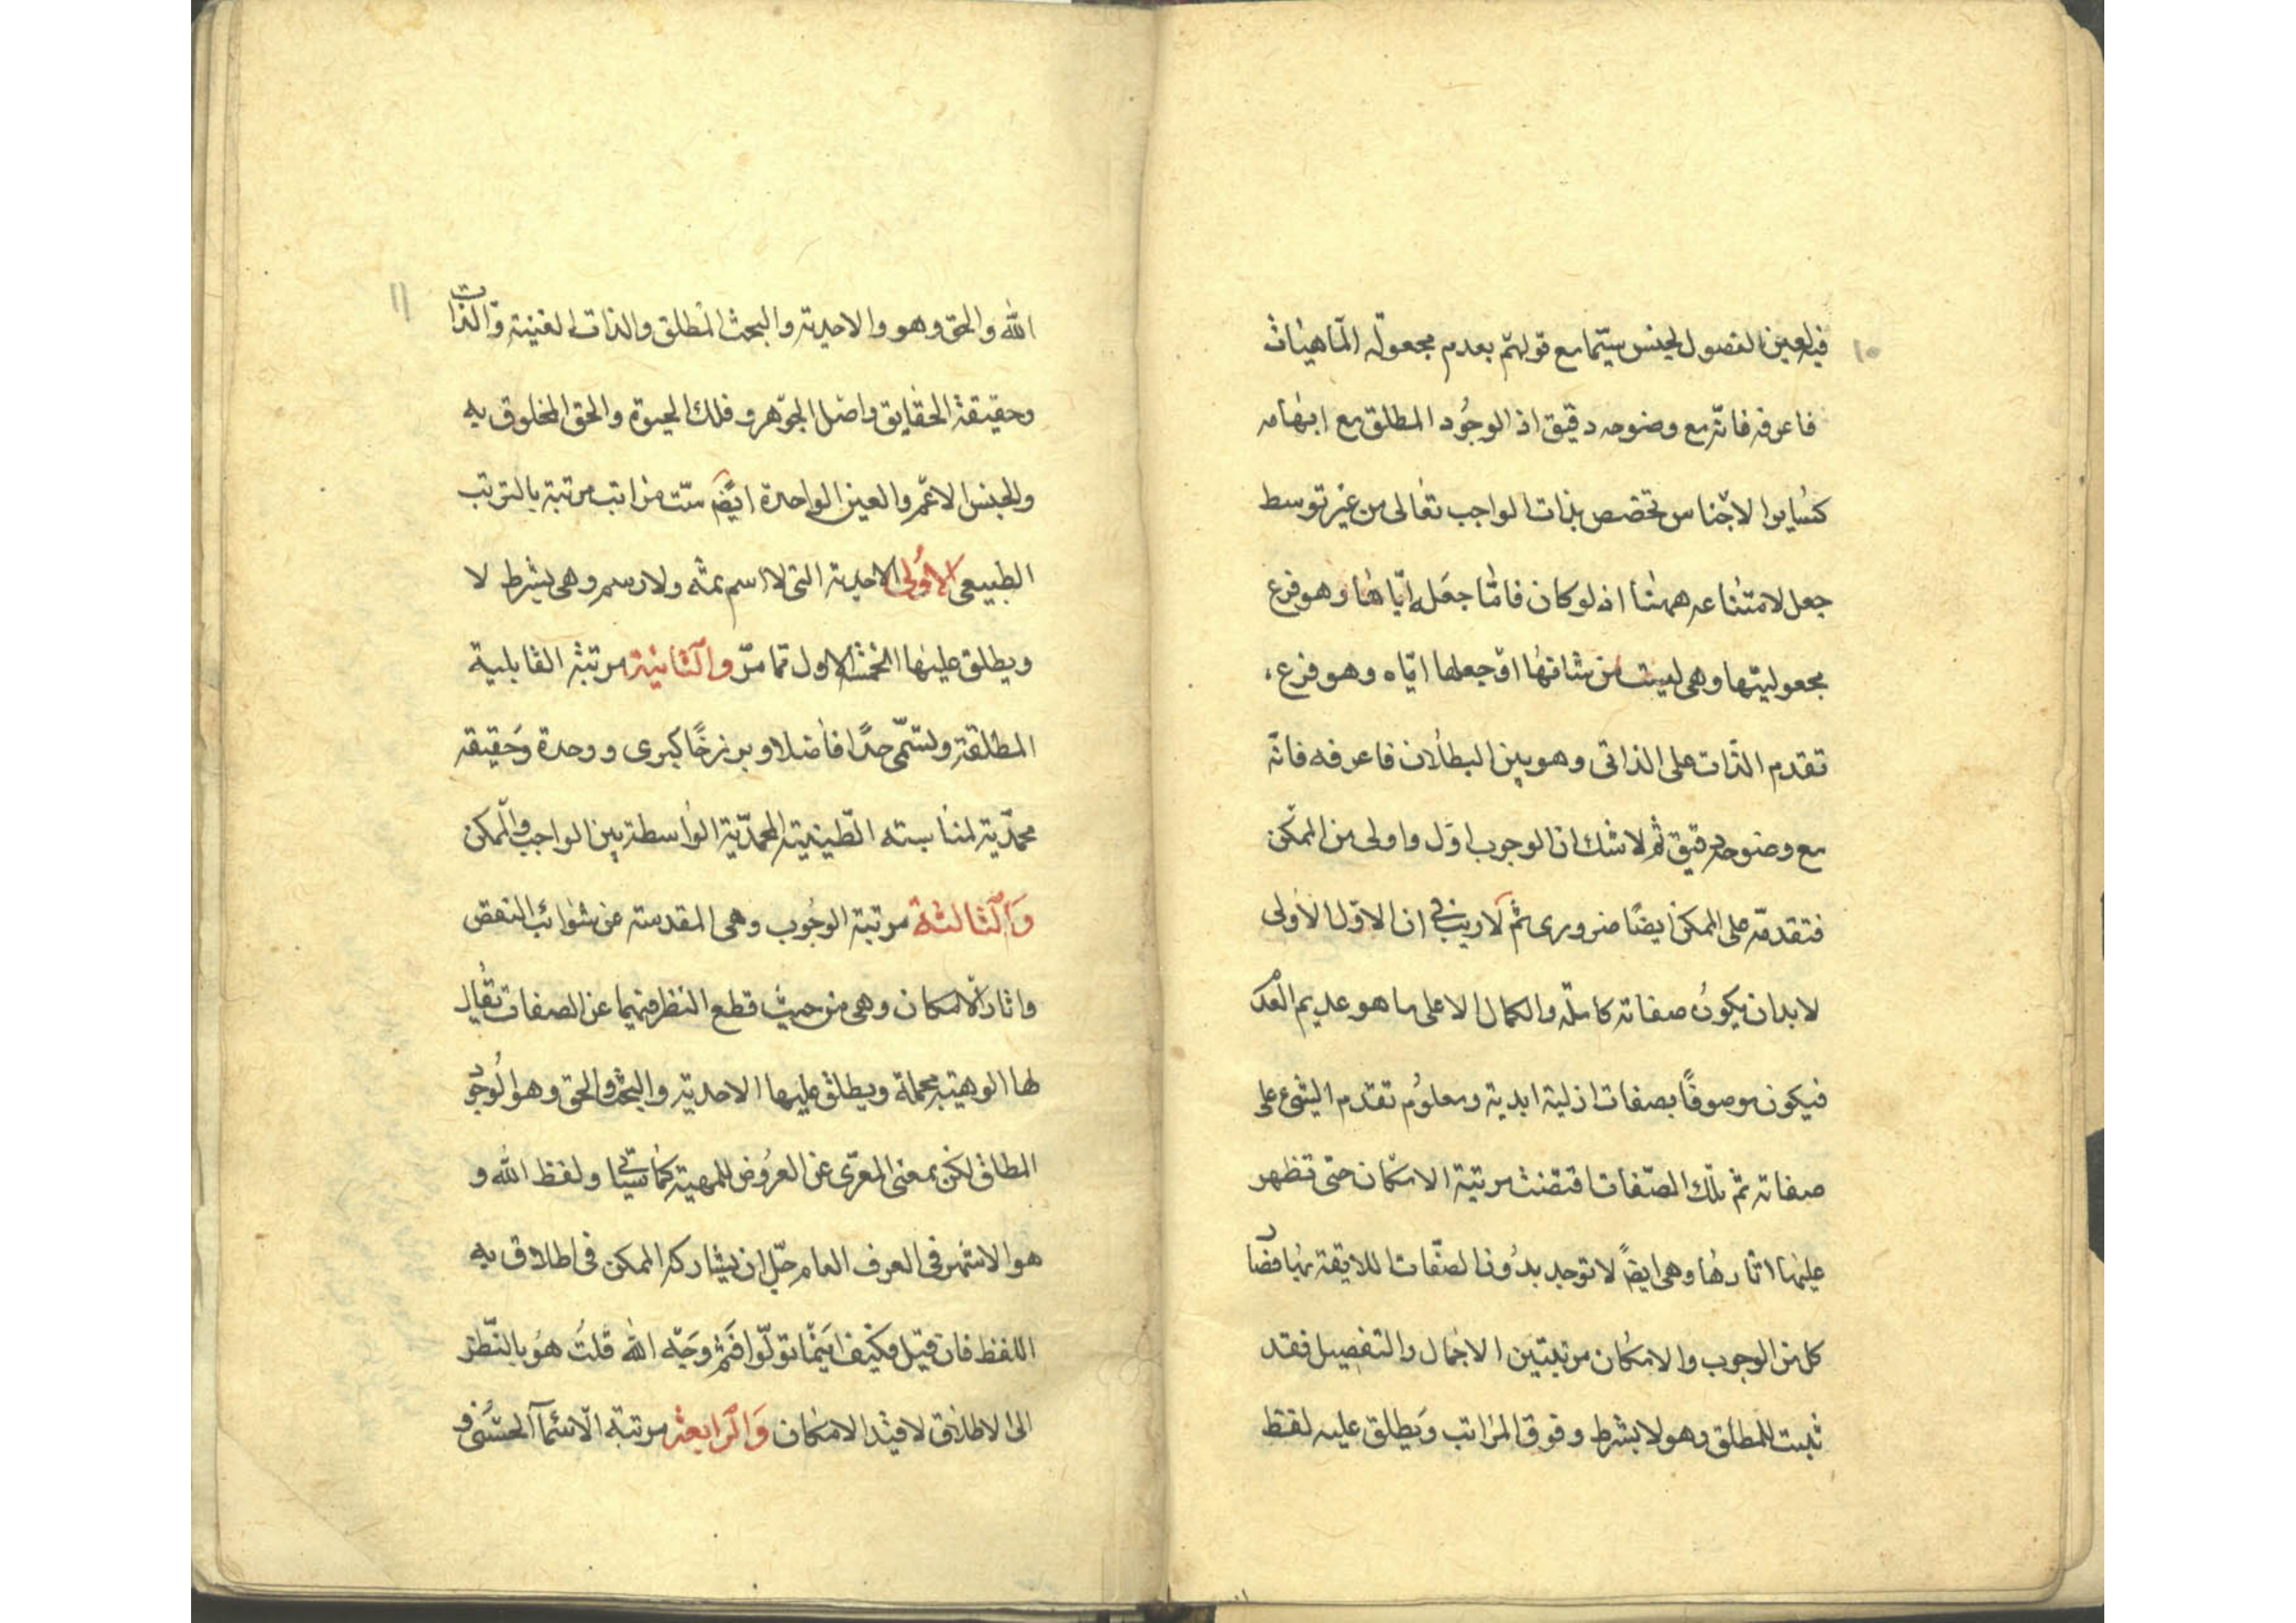 ١٠
فيلعين الفصول لجنس سيّما مع قولهم بعدم مجعولة الماهيات
فاعرفه فانّه مع وضوحه دقيق اذ الوجُود المطلق مع ابهامه
كسُاير الاجناس تخصص بذات الواجب تعالى من غير توسط
جعل لامتناعه ههنا اذ لو كان فامّا جعله ايّاها وهو فرع
مجعوليتها وهى ليست من شانها او جعلها ايّاه وهو فرع
تقدم الذات على الذاتى وهو بين البطلان فاعرفه فانّه
مع وضوحه دقيق ثم لا شك ان الوجوب اوّل واولى من الممكن
فتقدمه على الممكن ايضًا ضرورى ثم لا ريب فى ان الاوّل الاولى
لابد ان يكون صفاته كاملة والكمال الاعلى ما هو عديم العدم
فيكون موصوفًا بصفات ازلية ابدية ومعلوُم تقدم الشئ على
صفاته ثم تلك الصّفات اقتضت مرتبة الامكان حتى تظهر
عليها اثارها وهى ايضً لا توجد بدُون الصّفات اللايقة بها فصار
كل من الوجوب والامكان مرتبتين الاجمال والتفصيل فقد
ثبت المطلق وهو لا بشرط وفوق المراتب وَيطلق عليه لفظ
١١
الله والحق وهو والاحدية والبحت المطلق والذات الغنية والذات
وحقيقة الحقايق واصل الجوهر وفلك الحيوة والحق المخلوق به
والجنس الاعم والعين الواحدة ايضً ستّ مراتب مرتبة بالترتب
الطبيعى الاوُلى الاحدية التى لا اسم ثمه ولا رسم وهى بشرط لا
ويطلق عليها الخمسة الاول مما مرّ والثانية مرتبة القابلية
المطلقة وتسمّى حدًّا فاضلا وبرزخًا كبرى ووحدة وحقيقه
محمّدية لمناسبته الطينية المحمدّية الواسطة بين الواجب والممكن
وَالثالثة مرتبة الوجُوب وهى المقدسة عن شوائب النقص
واثار الامكان وهى من حيث قطع النظر فيها عن الصفات يقال
لها الوهية مجملة ويطلق عليها الاحدية والبحت والحق وهو الوجود
المطلق لكن بمعنى المعرّى عن العرُوض للمهية كما سيأتى ولفظ الله و
هو الاشهر فى العرف العام جلّ ان يشاركه الممكن فى اطلاق به
اللفظ فان قيل فكيف اينما تولّوا فثمّ وجه الله قلتُ هُو بالنّظر
الى الاطلاق لا قيد الامكان وَالرابعة مرتبة الاسمآ الحسنى و